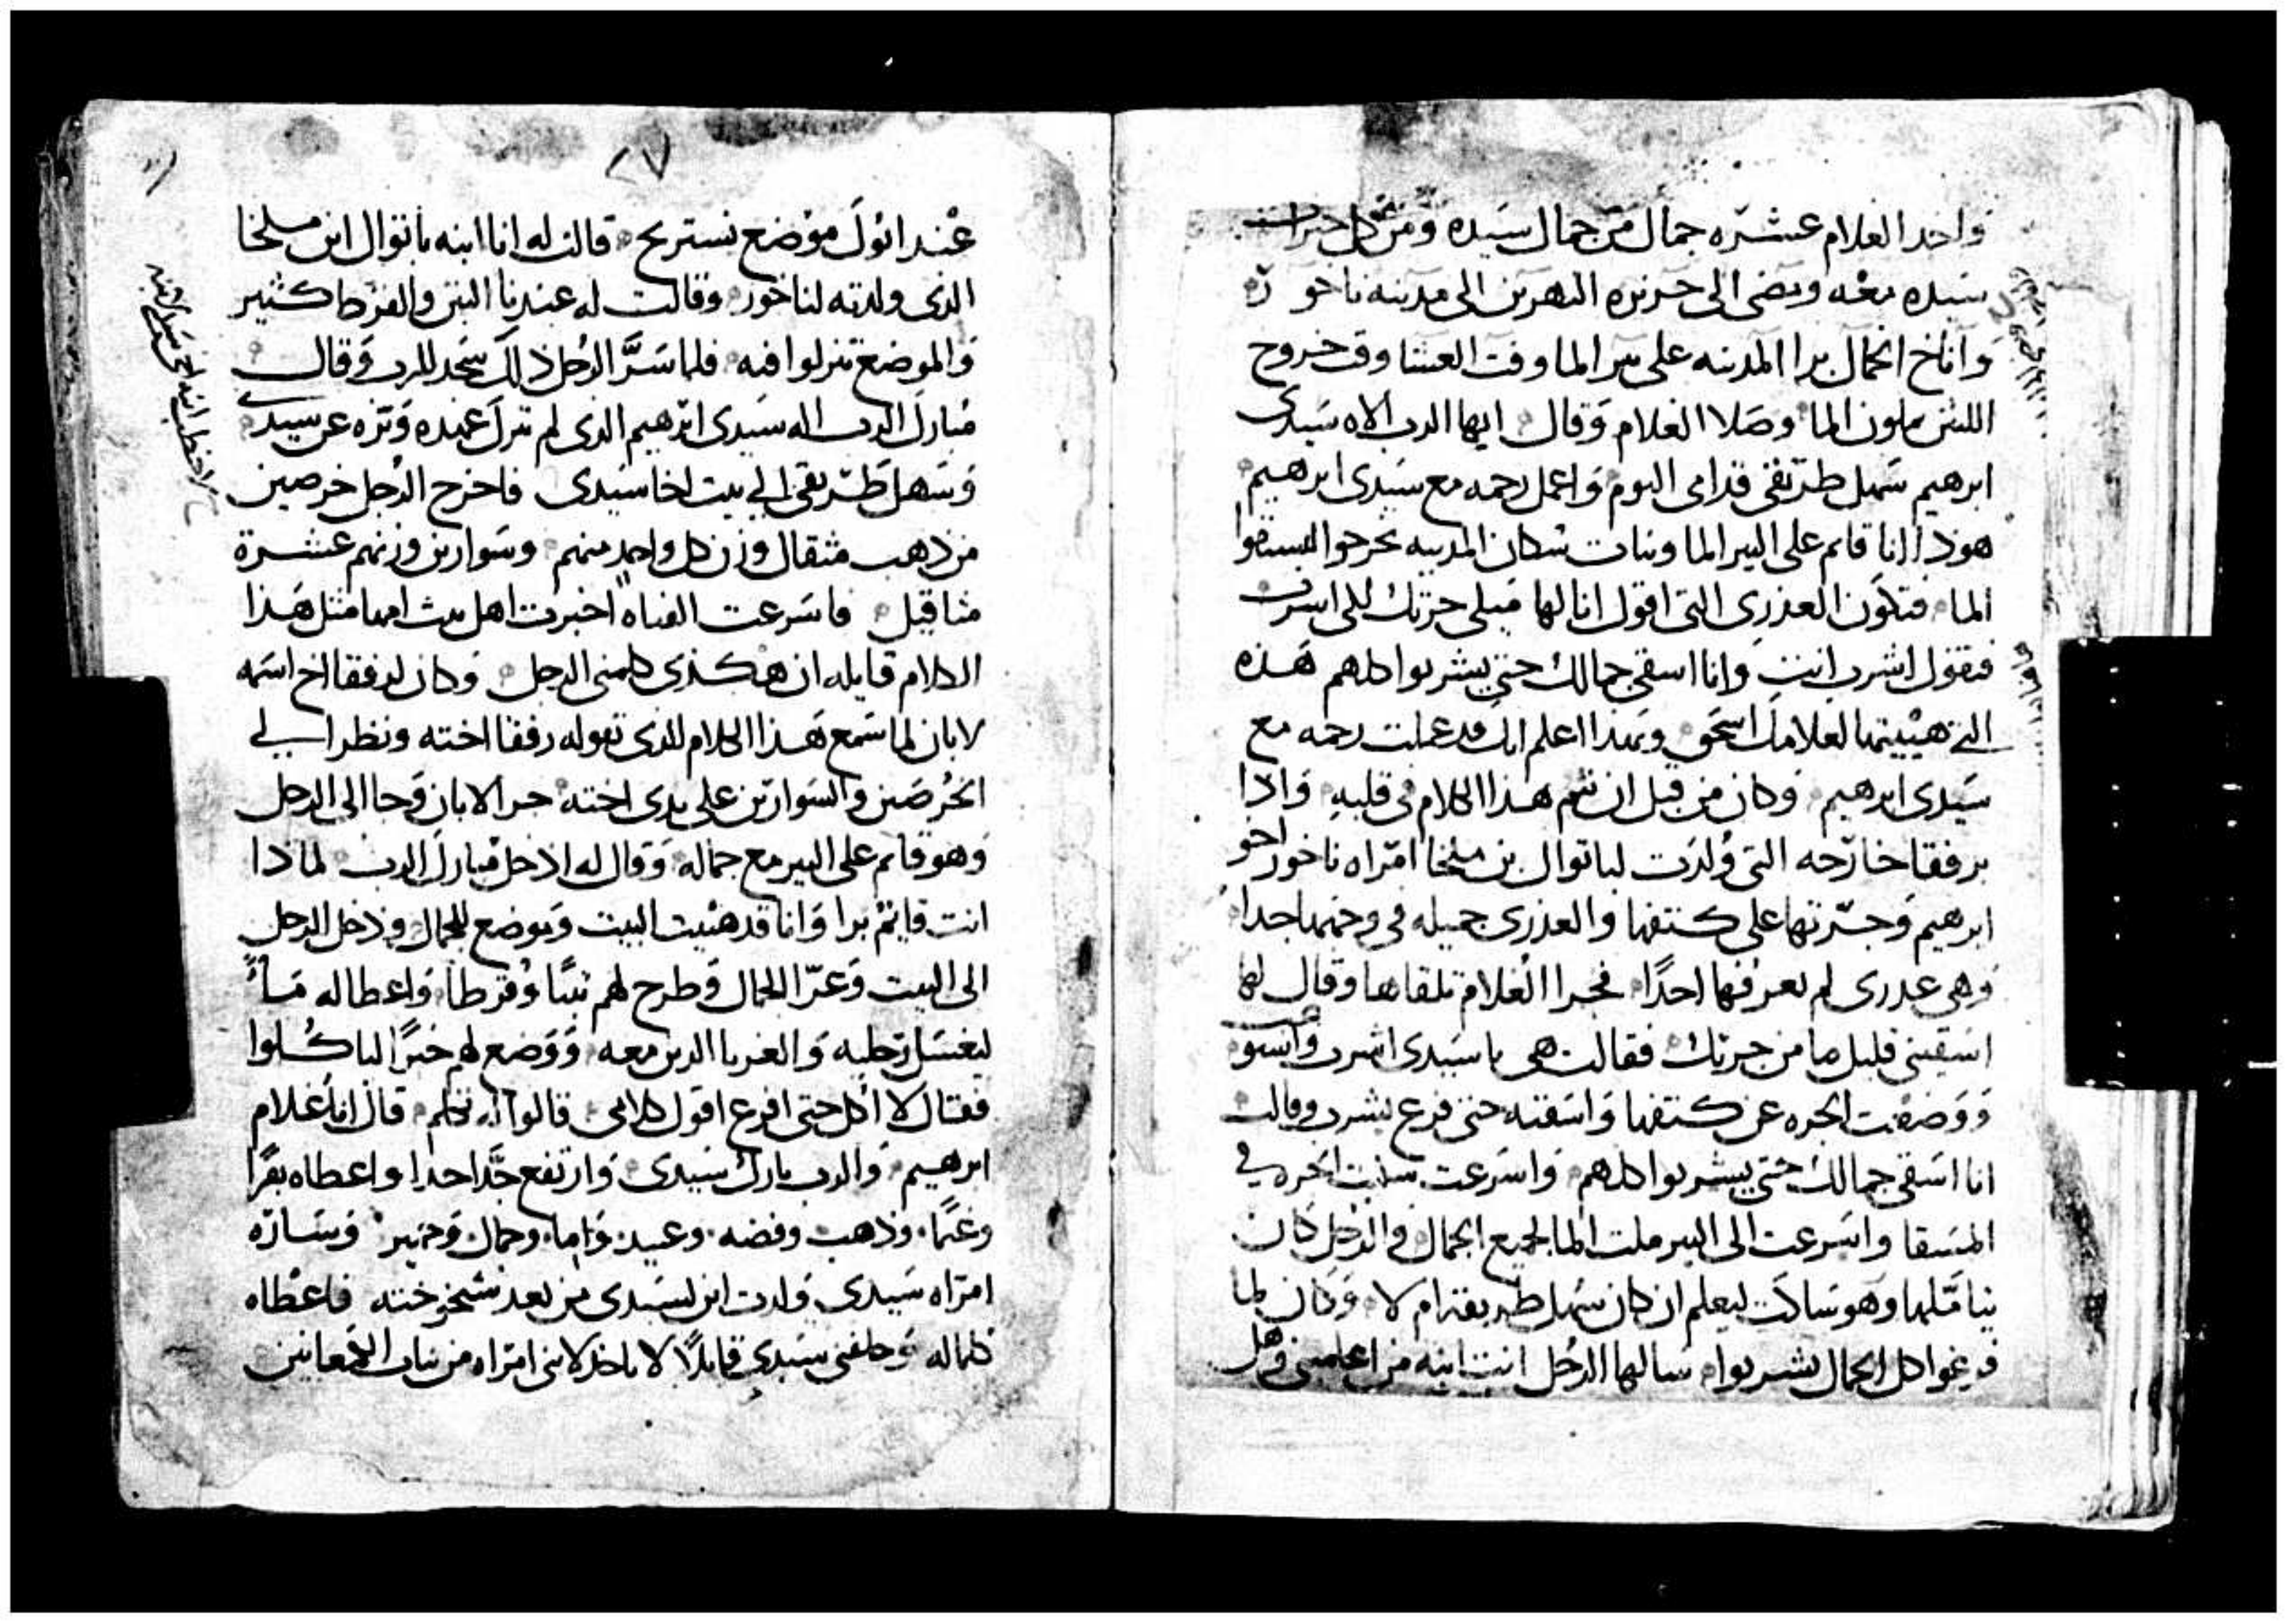 واخد الغلام عشره جمال من جمال سيده ومن كل خيرات
سيده معه ومضى الى جزيره النهرين الى مدينه ناخور
واناخ الجمال برا المدينه على بير الما وقت العشا وقت خروج
اللتين يملون الما وصلا الغلام وقال ايها الرب الاه سيدى
ابرهيم سهل طريقى قدامى اليوم واعمل رحمه مع سيدى ابرهيم
هوذا انا قايم على البير الما وبنات سكان المدينه يخرجوا ليستقوا
الما فتكون العذرى التى اقول انا لها ميلى جرتك الى اشرب
فتقول اشرب انت وانا اسقى جمالك حتى يشربوا كلهم هذه
التى هييتها لغلامك اسحق وبهذا اعلم انك قد عملت رحمه مع
سيدى ابرهيم وكان من قبل ان يتم هذا الكلام فى قلبه واذا
برفقا خارجه التى ولدت لباتوال بن ملخا امراه ناخور اخو
ابرهيم وجرتها على كتفها والعذرى جميله فى وجهها جدا
وهى عدرى لم يعرفها احدًا فجرا الغلام تلقاها وقال لها
اسقينى قليل ما من جرتك فقالت هى يا سيدى اشرب واسر
ووضعت الجره عن كتفها واسقته حتى فرع يشرب وقالت
انا اسقى جمالك حتى يشربوا كلهم واسرعت الجره فى
المسقا واسرعت الى البير ملت الما لجميع الجمال والرجل كان
يتاملها وهو ساكت ليعلم ان كان سهل طريقه ام لا وكان لما
فرغوا كل الجمال يشربوا سالها الرجل انت ابنه من اعلمينى وهل
٢٧
عند ابوك موضع نستريح قالت له انا ابنه باتوال ابن ملخا
الذى ولدته لناخور وقالت له عندنا التبن والقرط كثير
والموضع تنزلوا فيه فلما سرَّ الرجل ذلك سجد للرب وقال
مبارك الرب اله سيدى ابرهيم الذى لم عن سيدى
وسهل طريقى الى بيت اخا سيدى فاخرج الرجل خرصين
من ذهب مثقال وزن كل واحد منهم وسوارين وزنهم عشرة
مثاقيل فاسرعت الفتاه اخبرت اهل بيت امها مثل هذا
الكلام قايله ان هكذى كلمنى الرجل وكان لرفقا اخ اسمه
لابان لما سمع هذا الكلام الذى تقوله رفقا اخته ونظر الى
الخرصين والسوارين على يدى اخته جرا لابان وجا الى الرجل
وهو قايم على البير مع جماله وقال له ادخل مبارك الرب لماذا
انت قايم برا وانا قد هييت البيت وموضع للجمال ودخل الرجل
الى البيت وعرّا الجمال وطرح لهم تبنًا وقرطا واعطا له مآءً
ليغسل رجليه والغربا الدين معه ووضع لهم خبزًا لياكلوا
فقال لا اكل حتى افرع اقول كلامى قالوا له تكلم قال انا غلام
ابرهيم والرب بارك سيدى وارتفع جدًا جدا واعطاه بقرًا
وغنما وذهب وفضه وعبيد واما وجمال وحمير وساره
امراه سيدى ولدت ابن لسيدى من بعد شيخوخته فاعطاه
كلماله وحلفنى سيدى قايلًا لا ياخد لابنى امراه من بنات الكنعانيين